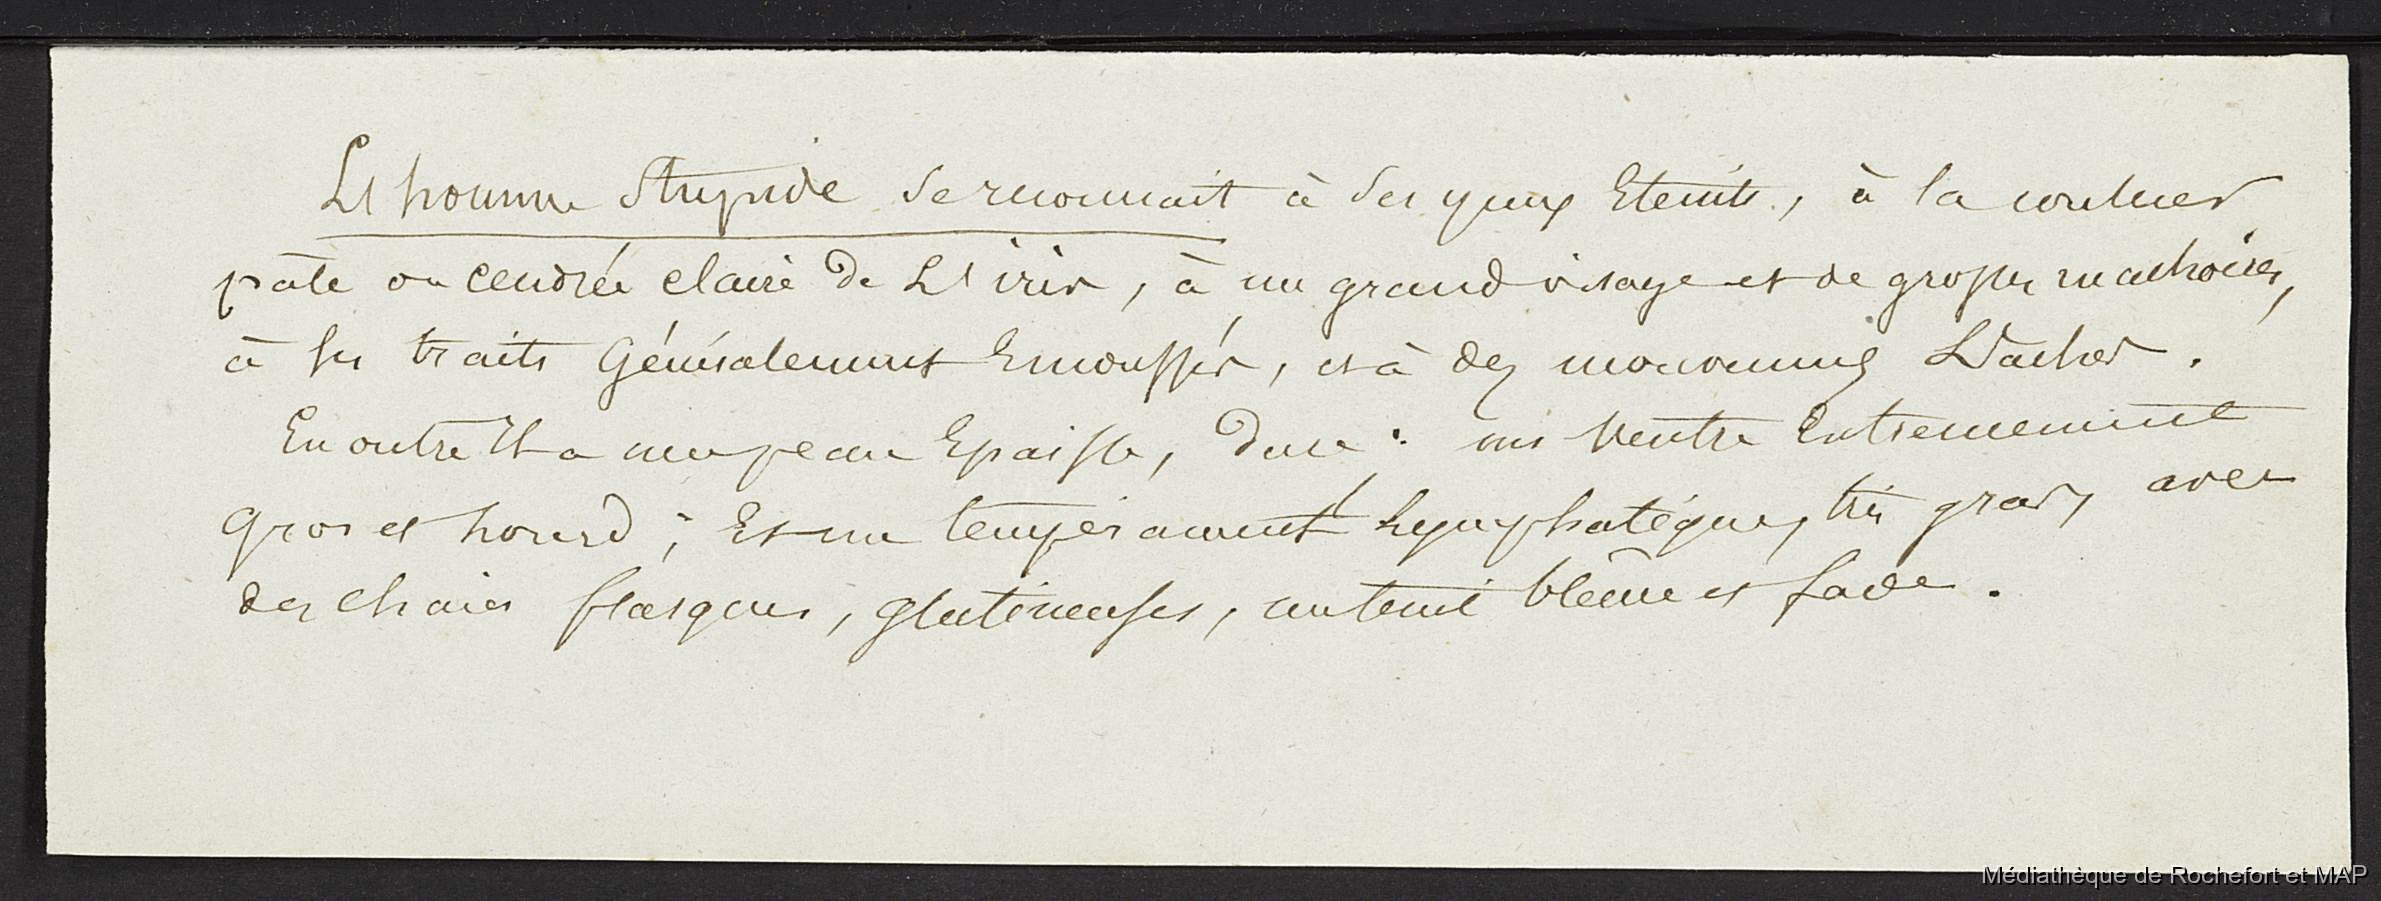 L'homme stupide se reconnait à ses yeux Eteints, à la couleur
pâle ou cendrée claire de L'iris, à un grand visage et de grosses machoires,
à ses traits Généralement Emoussés, et à des mouvemens Laches.
En outre Il a une peau Epaisse, dure ; un Ventre Extremement
Gros et Lourd ; Et un tempérament Lymphatique, très gras, avec
des chairs flasques, glutineuses, un teint blême et fade.
Médiathèque de Rochefort et MAP